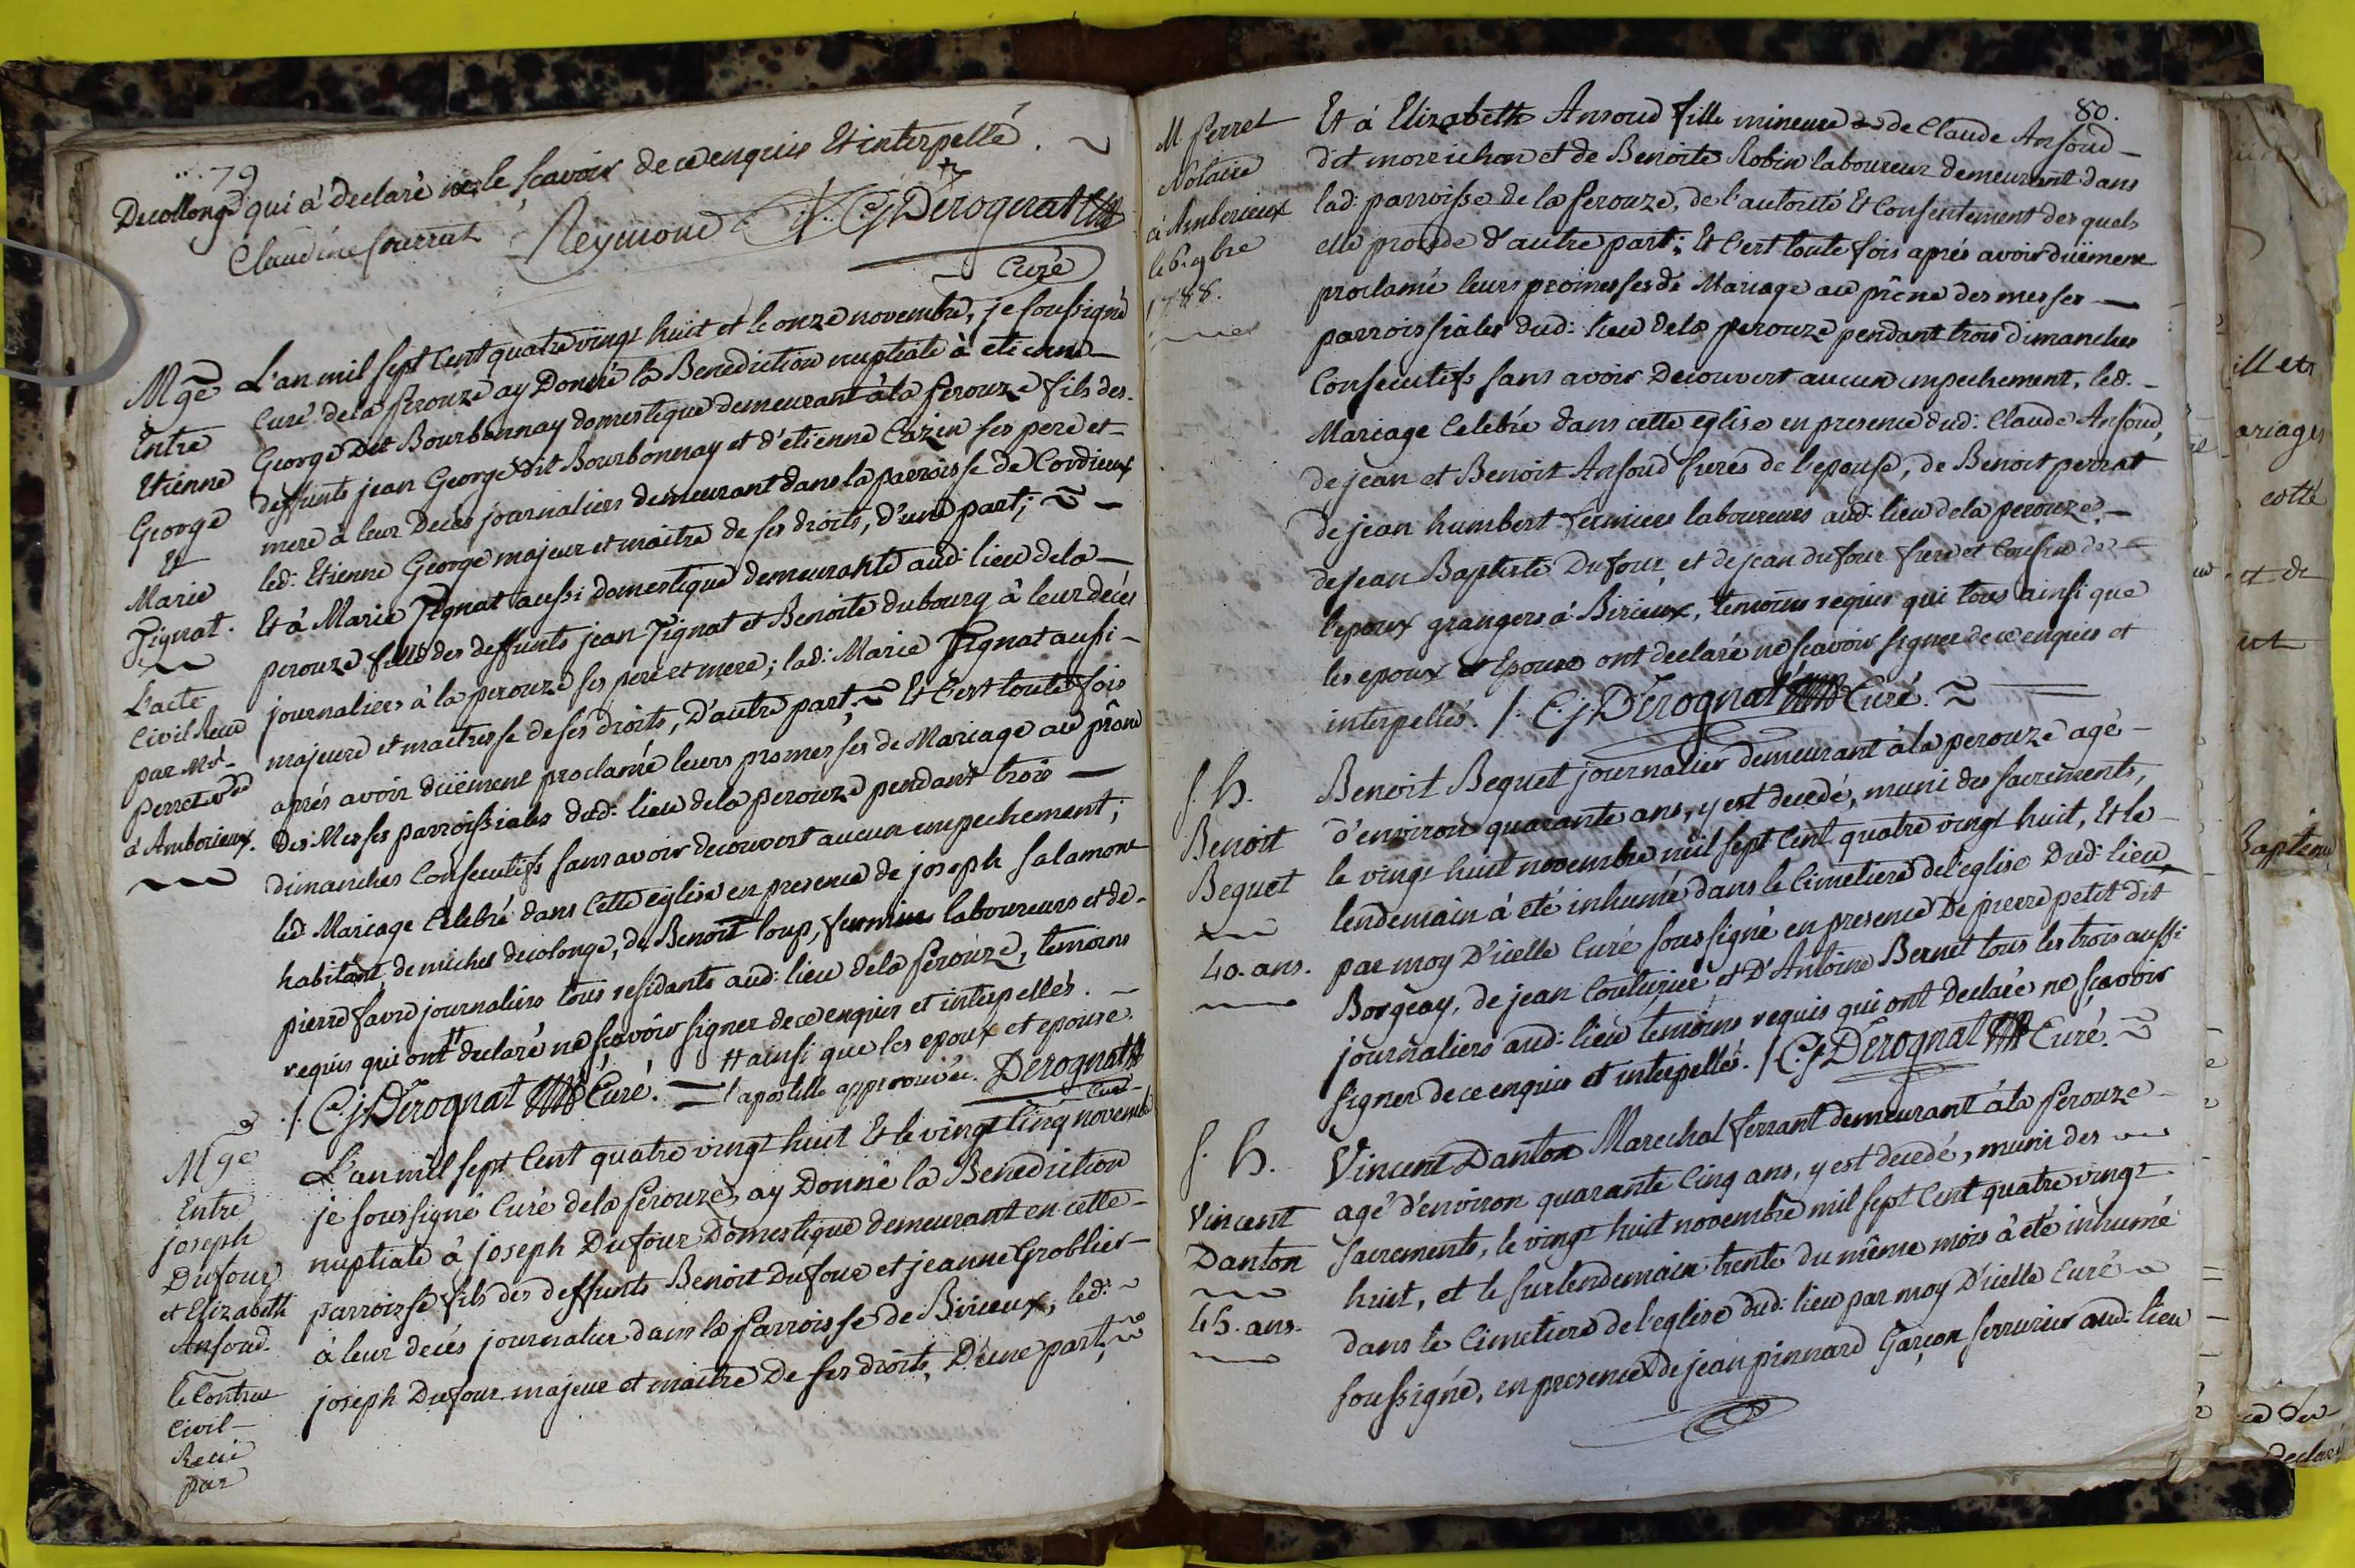 79
Decollonge qui à declaré ne le sçavoir de ce enquis Et interpellé.
Claudine fourrat Reymond C j Derognat
Curé
Mge
Entre
Etienne
George
Et
Marie
Pignat.
L'acte
Civil Recu
par Mt
perret
à Amberieux.
L'an mil sept Cent quatre vingt huit et le onze novembre, je soussigné
Curé dela perouze ay Donné la Benediction nuptiale à etienne
George Dit Bourbonnay domestique demeurant à la perouze fils des
deffunts jean George dit Bourbonnay et d'etienne Cazin ses pere et
mere à leur Decès journaliers demeurant dans la parroisse de Cordieux
led: Etienne George majeur et maitre de ses droits, d'une part;
Et à Marie Pignat aussi domestique demeurante aud: lieu dela
perouze fille des deffunts jean Pignat et Benoite dubourg à leur decès
journaliers à la perouze ses pere et mere; lad: Marie Pignat aussi
majeure et maitresse de ses droits, d'autre part; Et C'est toute fois
aprés avoir düement proclamé leurs promesses de Mariage au prône
des Messes parroissiales dud: lieu dela perouze pendant trois
dimanches Consecutifs sans avoir decouvert aucun empechement;
led Mariage Celebré dans Cette eglise en presence de joseph Salamont
habitant, de michel decolonge, de Benoit loup, fermier laboureurs et de
pierre favre journaliers tous residants aud: lieu dela perouze, temoins
requis qui ont # declaré ne sçavoir signer de ce enquis et interpellés.
# ainsi que les epoux et epouse.
/. C j Derognat Curé. l'apostille approuvée. Derognat
Curé
Mge
Entre
joseph
Dufour
et Elizabeth
Ansoud.
le Contrat
Civil
Recu
par
L'an mil sept Cent quatre vingt huit Et le vingt Cinq novembre
je soussigné Curé dela perouze, ay Donné la Benediction
nuptiale à joseph Dufour Domestique demeurant en cette
parroisse fils des deffunts Benoit Dufour et jeanne Groblier
à leur decés journalier dans la parroisse de Birieux, led:
joseph Dufour majeur et maitre De ses droits, D'une part;
80.
M perret
Notaire
à Amberieux
le 6. 9bre
1788.
Et à Elizabeth Ansoud fille mineure de Claude Ansoud
dit morrichon et de Benoite Robin laboureur demeurant dans
lad: parroisse de la perouze, de l'autorité Et Consentement des quels
elle procede d'autre part; Et C'est toute fois aprés avoir düement
proclamé leurs promesses de Mariage au prône des messes
parroissiales dud: lieu dela perouze pendant trois dimanches
Consecutifs sans avoir Decouvert aucun empechement, led.
Mariage Celebré dans cette eglise en presence dud: Claude Ansoud,
de jean et Benoit Ansoud freres de l'epouse, de Benoit perrat
de jean humbert fermiers laboureurs aud: lieu dela perouze,
de jean Baptiste Dufour, et de jean dufour frere et Cousin de
l'epoux grangers à Birieux, temoins requis qui tous ainsi que
les epoux et Epouse ont declaré ne sçavoir signer de ce enquis et
interpellés. /. C j Derognat Curé.
S. h.
Benoit
Beguet
40. ans.
Benoit Beguet journalier demeurant à la perouze agé
d'environ quarante ans, y est decedé, muni des sacrements,
le vingt huit novembre mil sept Cent quatre vingt huit, Et le
lendemain à eté inhumé dans le Cimetiere de l'eglise Dud: lieu,
par moy D'icelle Curé soussigné en presence De pierre petit dit
Borgeay, de jean Couturier et D'Antoine Bernet tous les trois aussi
journaliers aud: lieu temoins requis qui ont Declaré ne sçavoir
signer de ce enquis et interpellés. /. C j Derognat Curé.
S. h.
Vincent
Danton
45. ans.
Vincent Danton Marechal ferrant demeurant à la perouze
agé d'environ quarante Cinq ans, y est decedé, muni des
sacrements, le vingt huit novembre mil sept Cent quatre vingt
huit, et le surlendemain trente du même mois à eté inhumé
dans le Cimetiere de l'eglise dud: lieu par moy D'icelle Curé
soussigné, en presence de jean pinnard Garçon serrurier aud: lieu
ariages
cotté
et de